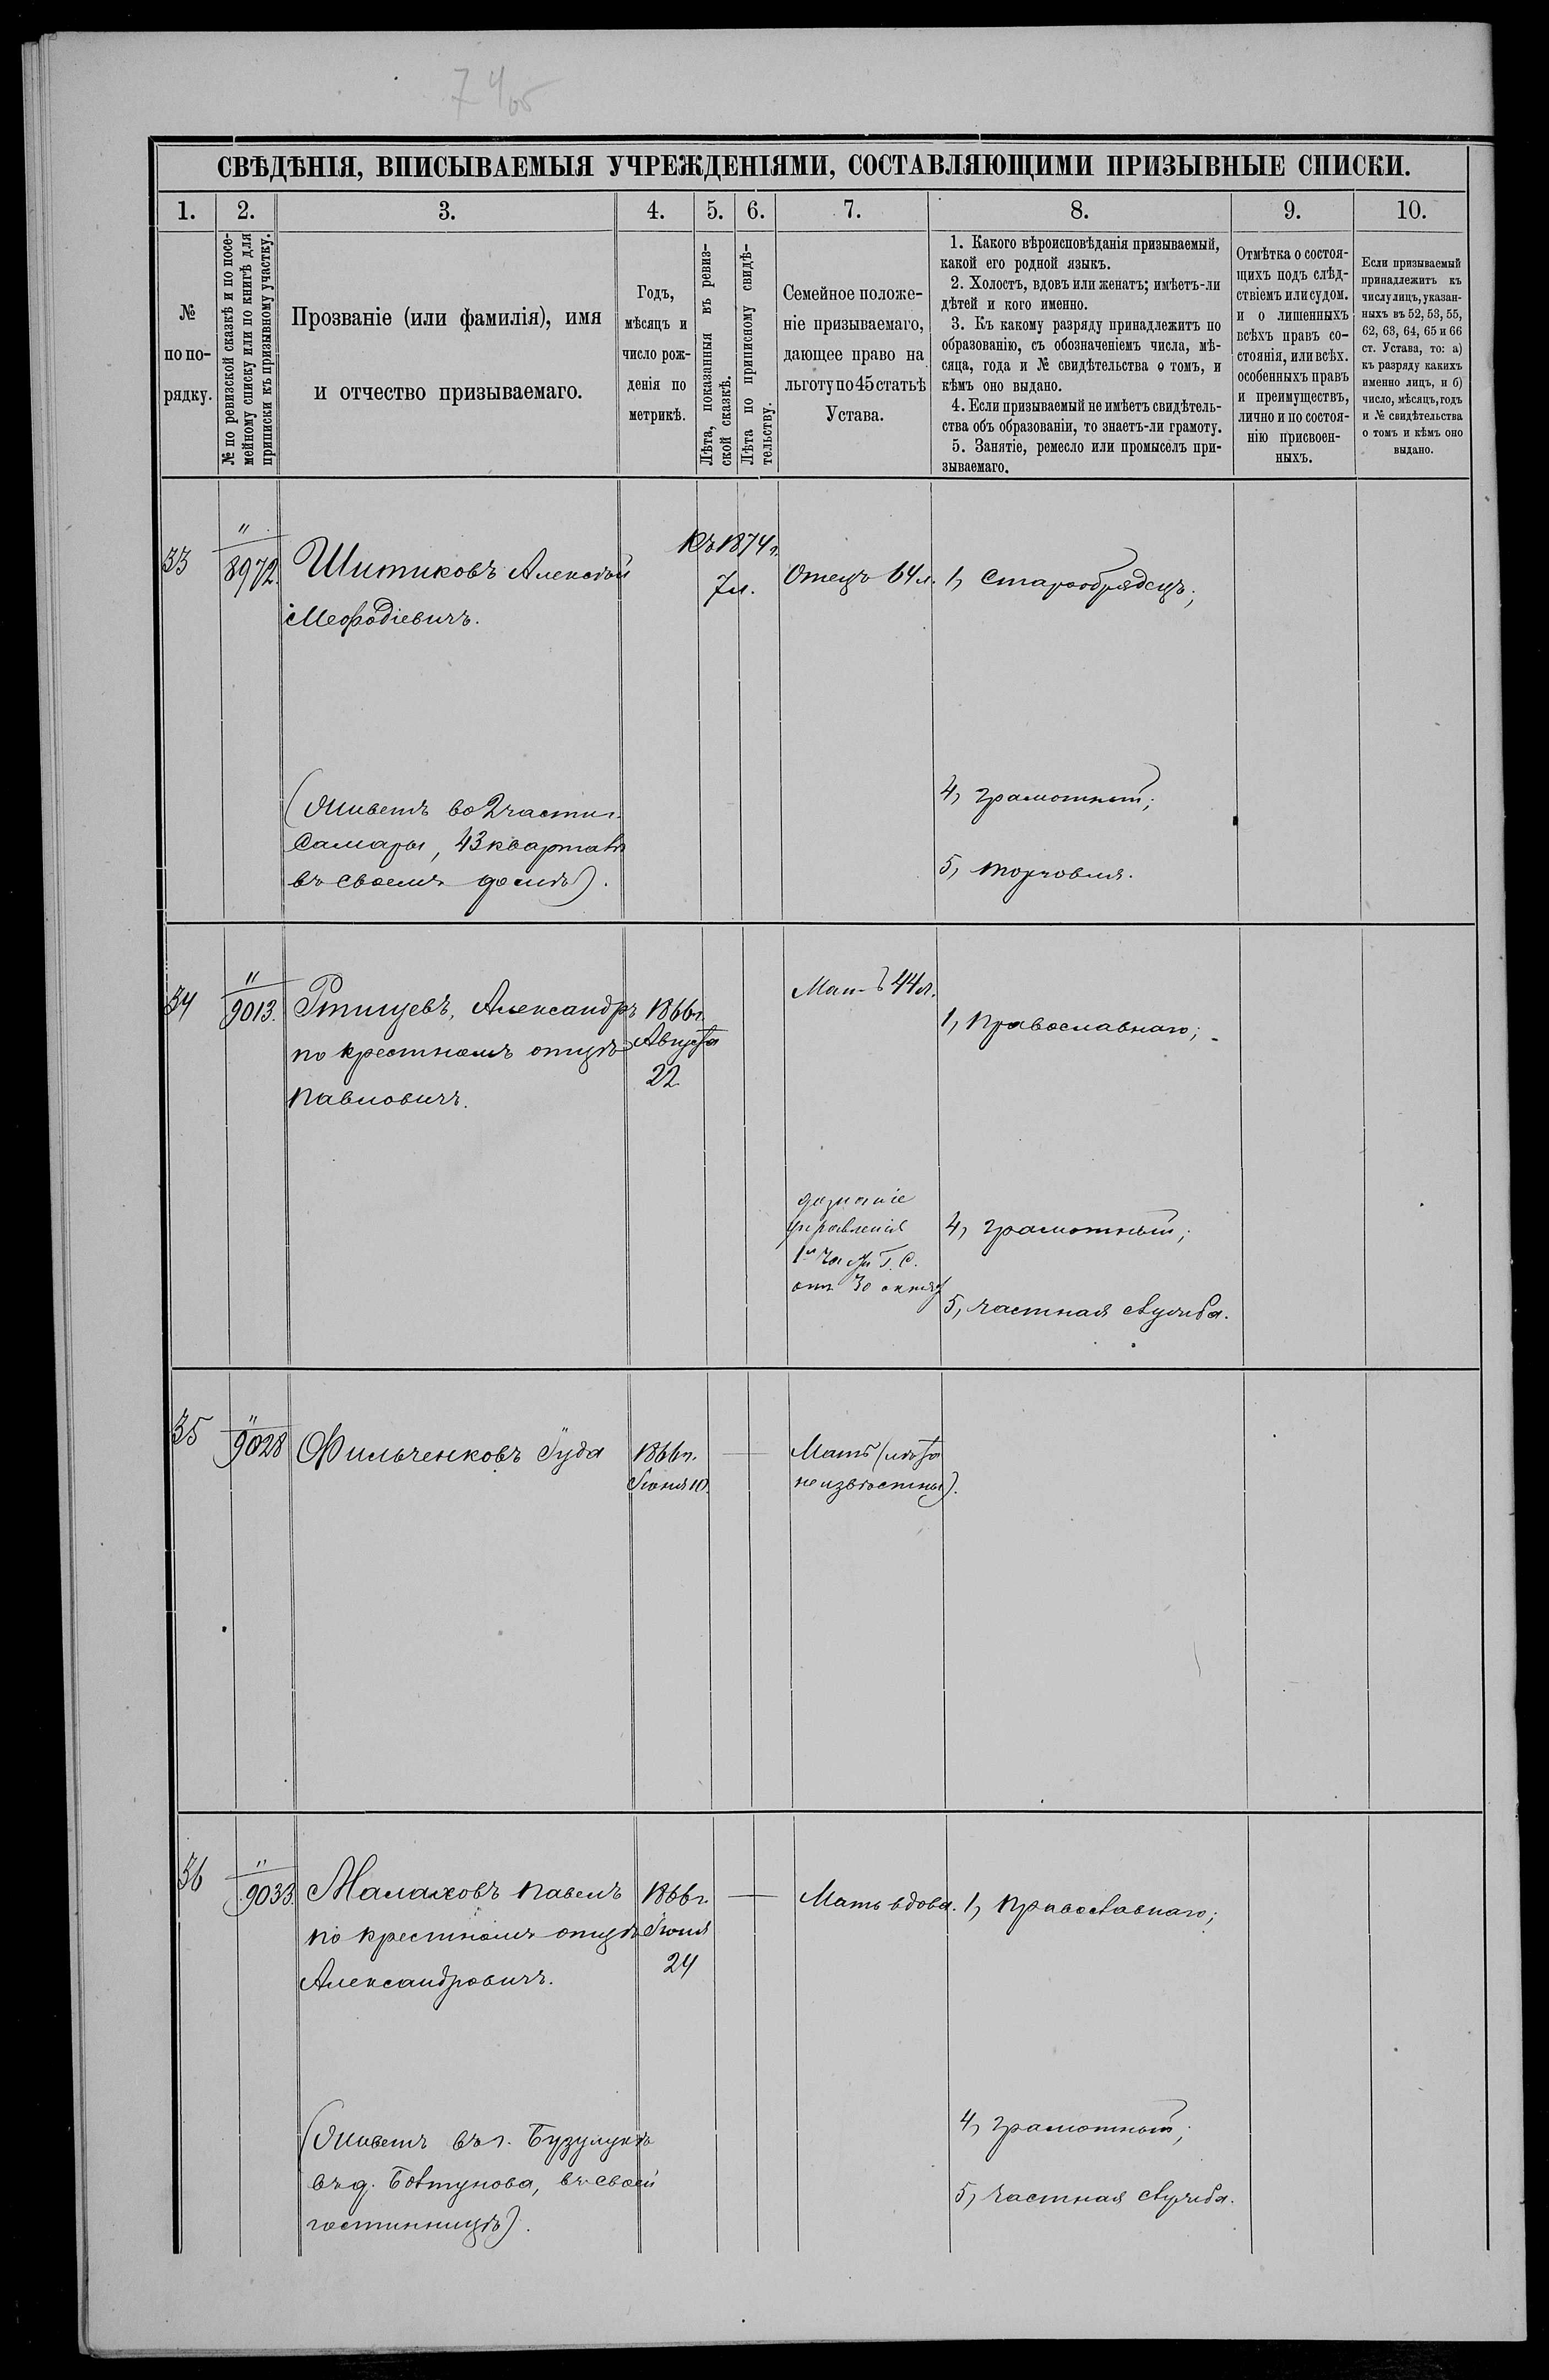 СВѢДѢНІЯ, ВПИСЫВАЕМЫЯ УЧРЕЖДЕНІЯМИ, СОСТАВЛЯЮЩИМИ ПРИЗЫВНЫЕ СПИСКИ.
1. 2. 3. 4. 5. 6. 7. 8. 9. 10.
№
по по-
рядку.
№ по ревизской сказкѣ и по посе-
мейному списку или по книгѣ для
приписки къ призывному участку.
Прозваніе (или фамилія), имя
и отчество призываемаго.
Годъ,
мѣсяцъ и
число рож-
денія по
метрикѣ.
Лѣта, показанныя въ ревиз-
ской сказкѣ.
Лѣта по приписному свидѣ-
тельству.
Семейное положе-
ніе призываемаго,
дающее право на
льготу по 45 статьѣ
Устава.
1. Какого вѣроисповѣданія призываемый,
какой его родной языкъ.
2. Холостъ, вдовъ или женатъ; имѣетъ-ли
дѣтей и кого именно.
3. Къ какому разряду принадлежитъ по
образованію, съ обозначеніемъ числа, мѣ-
сяца, года и № свидѣтельства о томъ, и
кѣмъ оно выдано.
4. Если призываемый не имѣетъ свидѣтель-
ства объ образованіи, то знаетъ-ли грамоту.
5. Занятіе, ремесло или промыселъ при-
зываемаго.
Отмѣтка о состоя-
щихъ подъ слѣд-
ствіемъ или судом.
и о лишенныхъ
всѣхъ правъ со-
стоянія, или всѣх.
особенныхъ правъ
и преимуществъ,
лично и по состоя-
нію присвоен-
ныхъ.
Если призываемый
принадлежитъ къ
числу лицъ, указан-
ныхъ въ 52, 53, 55,
62, 63, 64, 65 и 66
ст. Устава, то: а)
къ разряду какихъ
именно лицъ, и б)
число, мѣсяцъ, годъ
и № свидѣтельства
о томъ и кѣмъ оно
выдано.
33
"
8972.
Шитиковъ Алексѣй
Меѳодіевичъ.
Къ 1874 г.
7 л.
Отецъ 64 л.
1, Старообрядецъ;
(Живетъ во 2 части г.
Самары, 43 кварталѣ
въ своемъ домѣ).
4, грамотный;
5, торговля.
34
"
9013.
Ртищевъ, Александръ
по крестномъ отцѣ
Павловичъ.
1866 г.
Августа
22
Мать 44 л.
1, Православнаго;
дознаніе
управленія
1й части Г. С.
отъ 30 октяб
4, грамотный;
5, частная служба.
35
"
9028
Фильченковъ Іуда
1866 г.
Іюня 10.
Мать (лѣта
неизвѣстны).
36
"
9033.
Малаховъ Павелъ
по крестномъ отцѣ
Александровичъ.
1866 г.
Іюня
24
Мать вдова.
1, Православнаго;
(Живетъ въ г. Бузулукѣ
въ д. Болтунова, въ своей
гостинницѣ).
4, грамотный;
5, частная служба.